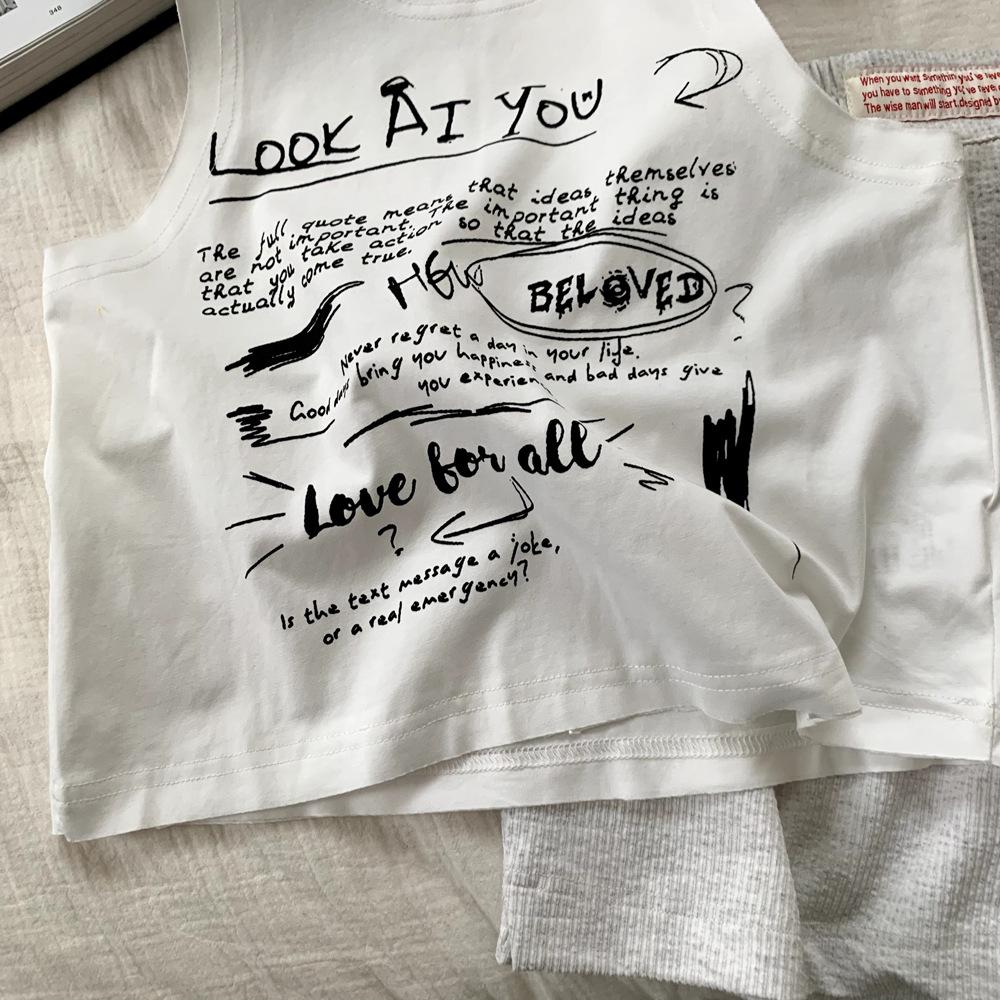 348
LOOK AT YOU
When you want sumethin you've
you have to something you've
The wise man will start.designd b
The full quote means that ideas themselves
are not important. The important thing is
that you take action so that the ideas
actually come true.
How BELOVED ?
Never regret a day in your life.
Good days bring you happiness and bad days give
you experien
Love for all
?
Is the text message a joke,
or a real emergency?